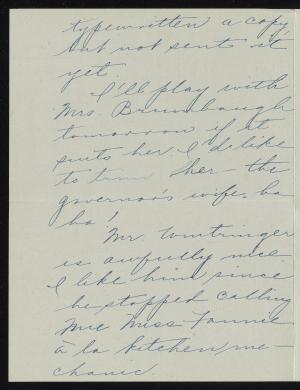 typewritten a copy,
but not sent it
yet.
I'll play with
Mrs. Brumbaugh
tomorrow if it
suits her. I'd like
to trim her - the
governor's wife, ha
ha!
Mr. Wintringer
is awfully nice.
I like him since
he stopped calling
me Miss Fannie
à la kitchen me-
chanic.